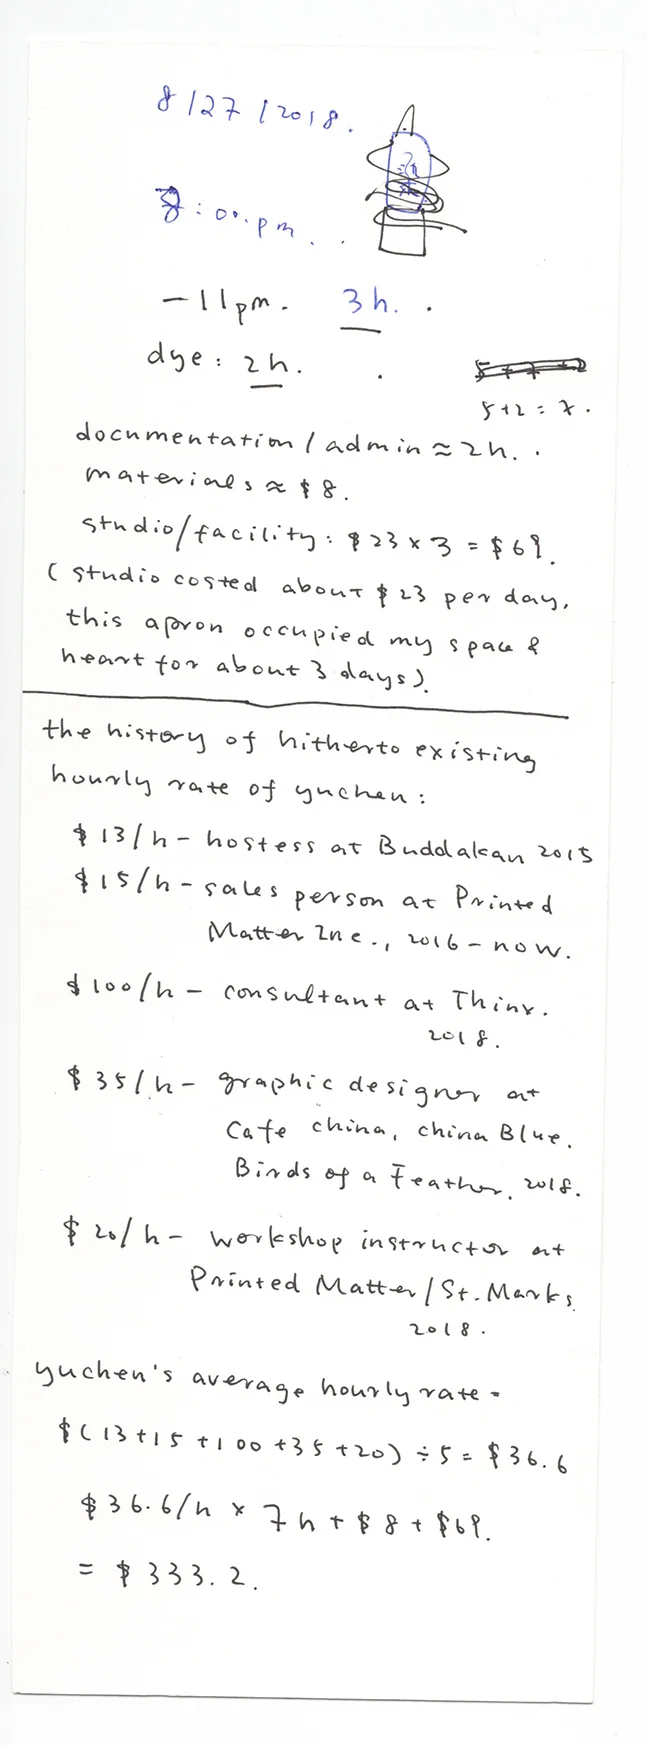 8/27/2018.
8:00.pm..
-11pm. 3h.
dye: 2h.
5+2=7.
documentation/admin≈2h..
materials≈$8.
studio/facility: $23×3=$69.
(studio costed about $23 per day,
this apron occupied my space &
heart for about 3 days).
the history of hitherto existing
hourly rate of yuchen:
$13/h - hostess at Buddakan 2015
$15/h - sales person at Printed
Matter Inc., 2016 - now.
$100/h - consultant at Thinx.
2018.
$35/h - graphic designer at
Cafe china, china Blue,
Birds of a Feather, 2018.
$20/h - workshop instructor at
Printed Matter/St. Marks
2018.
yuchen's average hourly rate =
$(13+15+100+35+20)÷5=$36.6
$36.6/h × 7h + $8 + $69.
= $333.2.